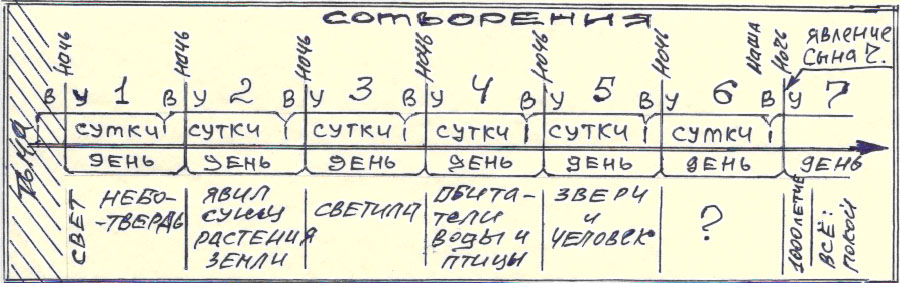 СОТВОРЕНИЯ
НОЧЬ НОЧЬ НОЧЬ НОЧЬ НОЧЬ НОЧЬ НАША НОЧЬ
ЯВЛЕНИЕ
СЫНА Ч.
В У 1 В У 2 В У 3 В У 4 В У 5 В У 6 В У 7
СУТКИ СУТКИ СУТКИ СУТКИ СУТКИ СУТКИ
ТЬМА
ДЕНЬ ДЕНЬ ДЕНЬ ДЕНЬ ДЕНЬ ДЕНЬ ДЕНЬ
СВЕТ
НЕБО-
-ТВЕРДЬ
ЯВИЛ
СУШУ
РАСТЕНИЯ
ЗЕМЛИ
СВЕТИЛА
ОБИТА-
ТЕЛИ
ВОДЫ И
ПТИЦЫ
ЗВЕРИ
И
ЧЕЛОВЕК
?
1000ЛЕТИЕ
ВСЁ:
ПОКОЙ